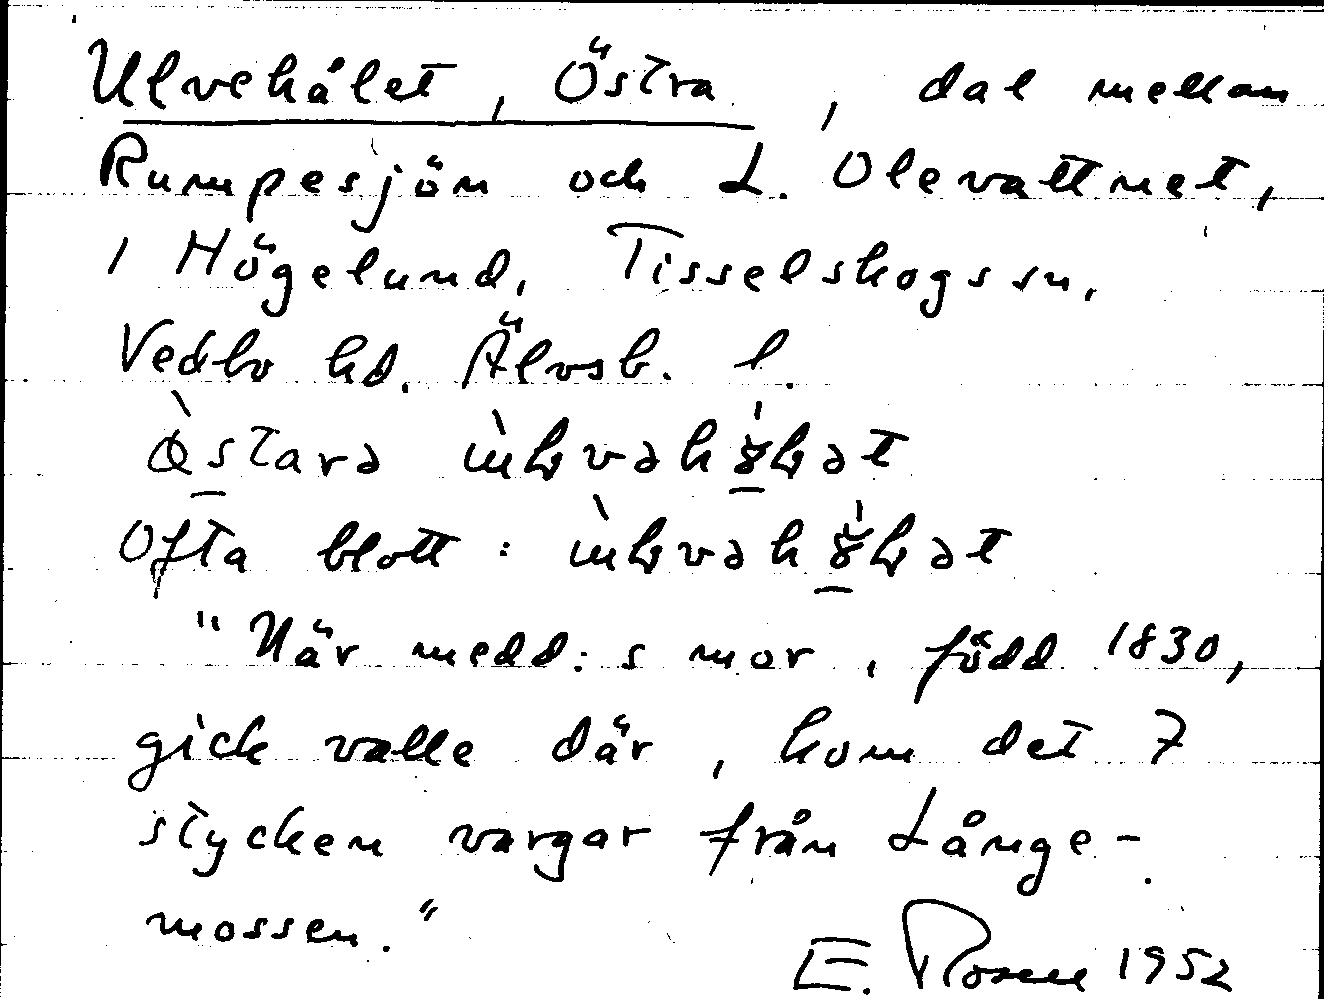 Ulvehålet, Östra, dal mellan
Rumpesjön och L. Olevattnet,
i Högelund, Tisselskogs sn,
Vedbo hd. Älvsb. l.
Ofta blott:
"När medd:s mor, född 1830,
gick valle där, kom det 7
stycken vargar från Långe-
mossen."
E. Rosell 1952